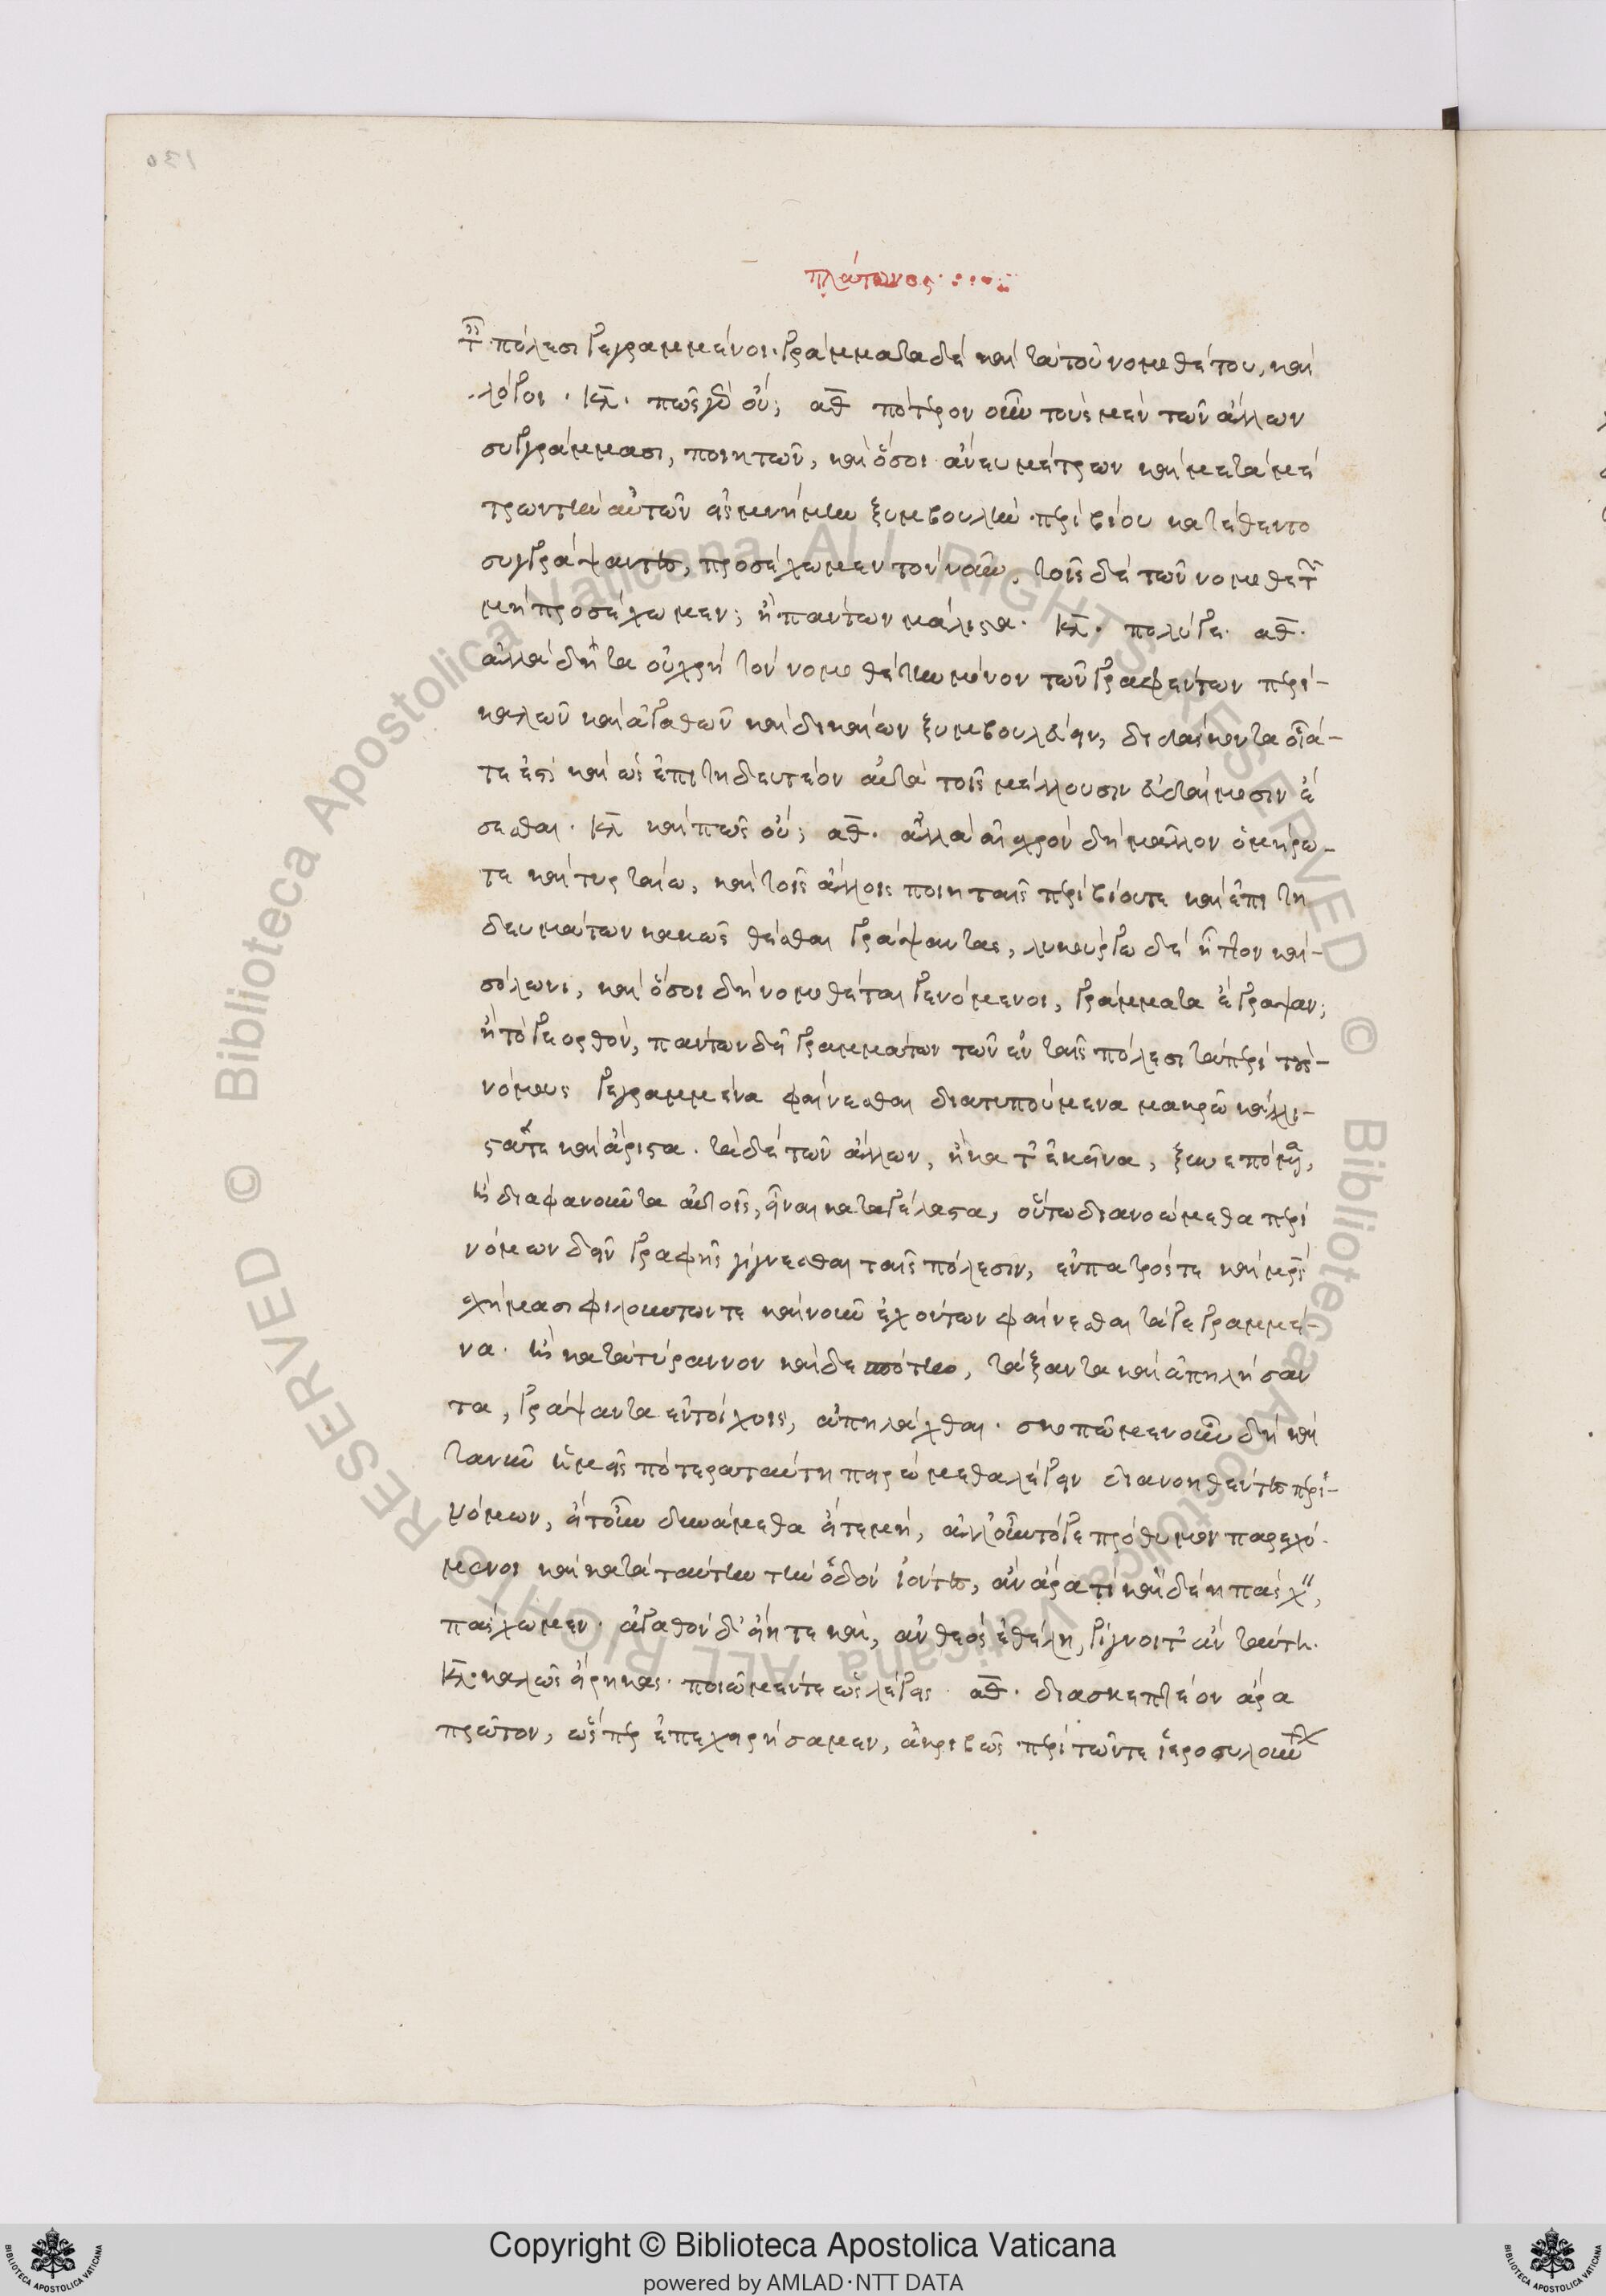 130
πλάτωνος
τ πόλεσι γεγραμμένοι. γράμματα δὲ καὶ τὰ τοῦ νομοθέτου, καὶ
λόγοι. κλ. πῶς γὰρ οὔ; αθ πότερον οὖν τοὺς μὲν τῶν ἄλλων
συγγράμμασι, ποιητῶν, καὶ ὅσοι ἄνευ μέτρων καὶ μετὰ μέ
τρων τὴν αὐτῶν εἰς μνήμην ξυμβουλὴν περὶ βίου κατέθεντο
συγγράψαντες, προσέχωμεν τὸν νοῦν, τοῖς δὲ τῶν νομοθετῶν
μὴ προσέχωμεν; ἢ πάντων μάλιστα. κλ. πολύ γε. αθ.
ἀλλὰ δῆτα οὐ χρὴ τὸν νομοθέτην μόνον τῶν γραφέντων περὶ-
καλῶν καὶ ἀγαθῶν καὶ δικαίων ξυμβουλεύειν, διδάσκοντα οἷά-
τε ἐστὶ καὶ ὡς ἐπιτηδευτέον αὐτὰ τοῖς μέλλουσιν εὐδαίμοσιν ἔ
σεσθαι. κλ καὶ πῶς οὔ; αθ. ἀλλὰ αἰσχρὸν δὴ μᾶλλον ὁμήρω-
τε καὶ τυρταίω, καὶ τοῖς ἄλλοις ποιηταῖς περὶ βίου τε καὶ ἐπιτη
δευμάτων κακῶς θέσθαι γράψαντας, λυκούργω δὲ ἧττον καὶ-
σόλωνι, καὶ ὅσοι δὴ νομοθέται γενόμενοι, γράμματα ἔγραψαν;
ἢ τό γε ορθὸν, πάντων δεῖ γραμμάτων τῶν ἐν ταῖς πόλεσι τὰ περὶ τοὺς-
νόμους γεγραμμένα φαίνεσθαι διατυπούμενα μακρῶ κάλλι-
στά τε καὶ ἄριστα. τὰ δὲ τῶν ἄλλων, ἢ κατ' ἐκεῖνα, ξυνεπόμενα,
ἢ διαφωνοῦντα αὐτοῖς, εἶναι καταγέλαστα, οὕτω διανοώμεθα περὶ
νόμων δεῖν γραφῆς γίγνεσθαι ταῖς πόλεσιν, ἐν πατρός τε καὶ μητρὸς
σχήμασι φιλούντων τε καὶ νοῦν ἐχόντων φαίνεσθαι τὰ γεγραμμέ-
να. ἢ κατὰ τύραννον καὶ δεσπότην, τάξαντα καὶ ἀπειλήσαν
τα, γράψαντα ἐν τοίχοις, ἀπηλλάχθαι. σκοπῶμεν οὖν δὴ καὶ
τανῦν ἡμεῖς πότερα ταύτη πειρώμεθα λέγειν διανοηθέντες περὶ-
νόμων, εἴτ' οὖν δυνάμεθα εἴτε μή, ἀλλ' οὖν τό γε πρόθυμον παρεχό-
μενοι καὶ κατὰ ταύτην τὴν ὁδὸν ἰόντες, ἂν ἄρα τὶ καὶ δέη πάσχειν,
πάσχωμεν. ἀγαθὸν δ' εἴη τε καὶ, ἂν θεὸς ἐθέλη, γίγνοιτ' ἂν ταύτη.
κλ. καλῶς εἴρηκας. ποιῶμέν τε ὡς λέγεις. αθ. διασκεπτέον ἄρα
πρῶτον, ὥσπερ ἐπεχειρήσαμεν, ἀκριβῶς περὶ τῶν τε ἱεροσυλούντων
Copyright © Biblioteca Apostolica Vaticana
powered by AMLAD·NTT DATA